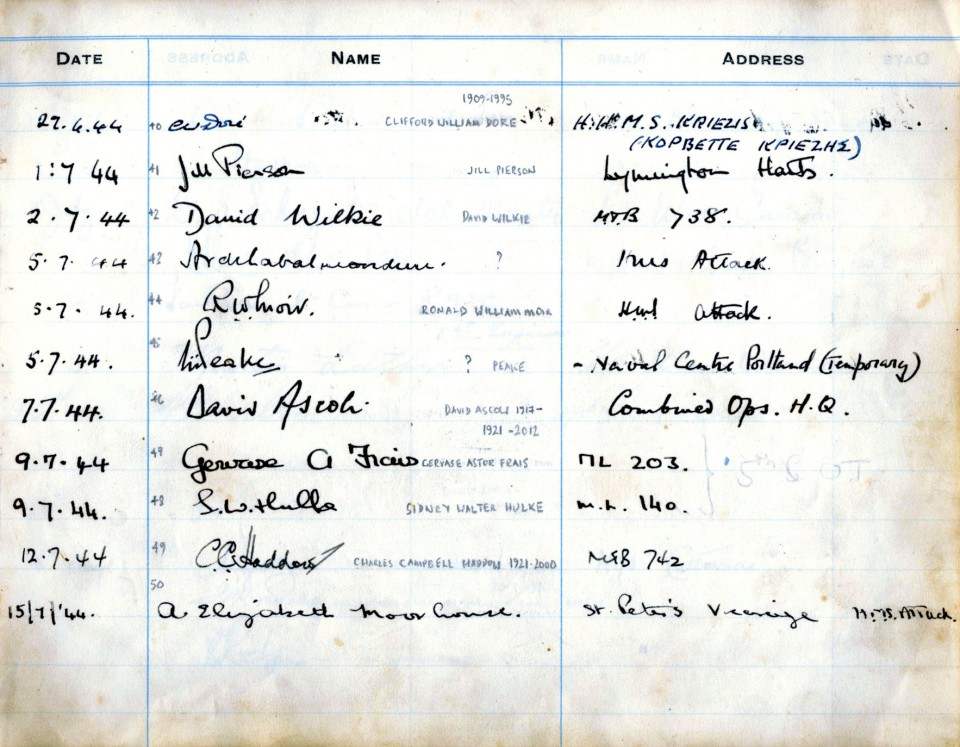 DATE NAME ADDRESS
1909-1995
27.6.44 40 CW Doré CLIFFORD WILLIAM DORE H.H.M.S. KRIEZIS
(KOPBETTE ΚΡΙΕΖΗΣ)
1:7 44 41 Jill Pierson JILL PIERSON Lymington Hants.
2.7.44 42 David Wilkie DAVID WILKIE MTB 738.
5.7.44 43 ? HMS Attack.
5.7.44. 44 R.W. Moir. RONALD WILLIAM MOIR HMS Attack.
5.7.44. 45 Peake ? PEAKE - Naval Centre Portland (Temporary)
7.7.44. 46 David Ascoli. DAVID ASCOLI 1917- Combined Ops. H.Q.
1921-2012
9.7.44 Gervase A Frais GERVASE ASTOR FRAIS ML 203.
9.7.44. 48 S.W. Hulke SIDNEY WALTER HULKE M.L. 140.
12.7.44 49 C.C. Haddow CHARLES CAMPBELL HADDOW 1921-2000 MGB 742
50
15/7/'44. A Elizabeth Moorhouse. St. Peter's Vicarage H.M.S. Attack.